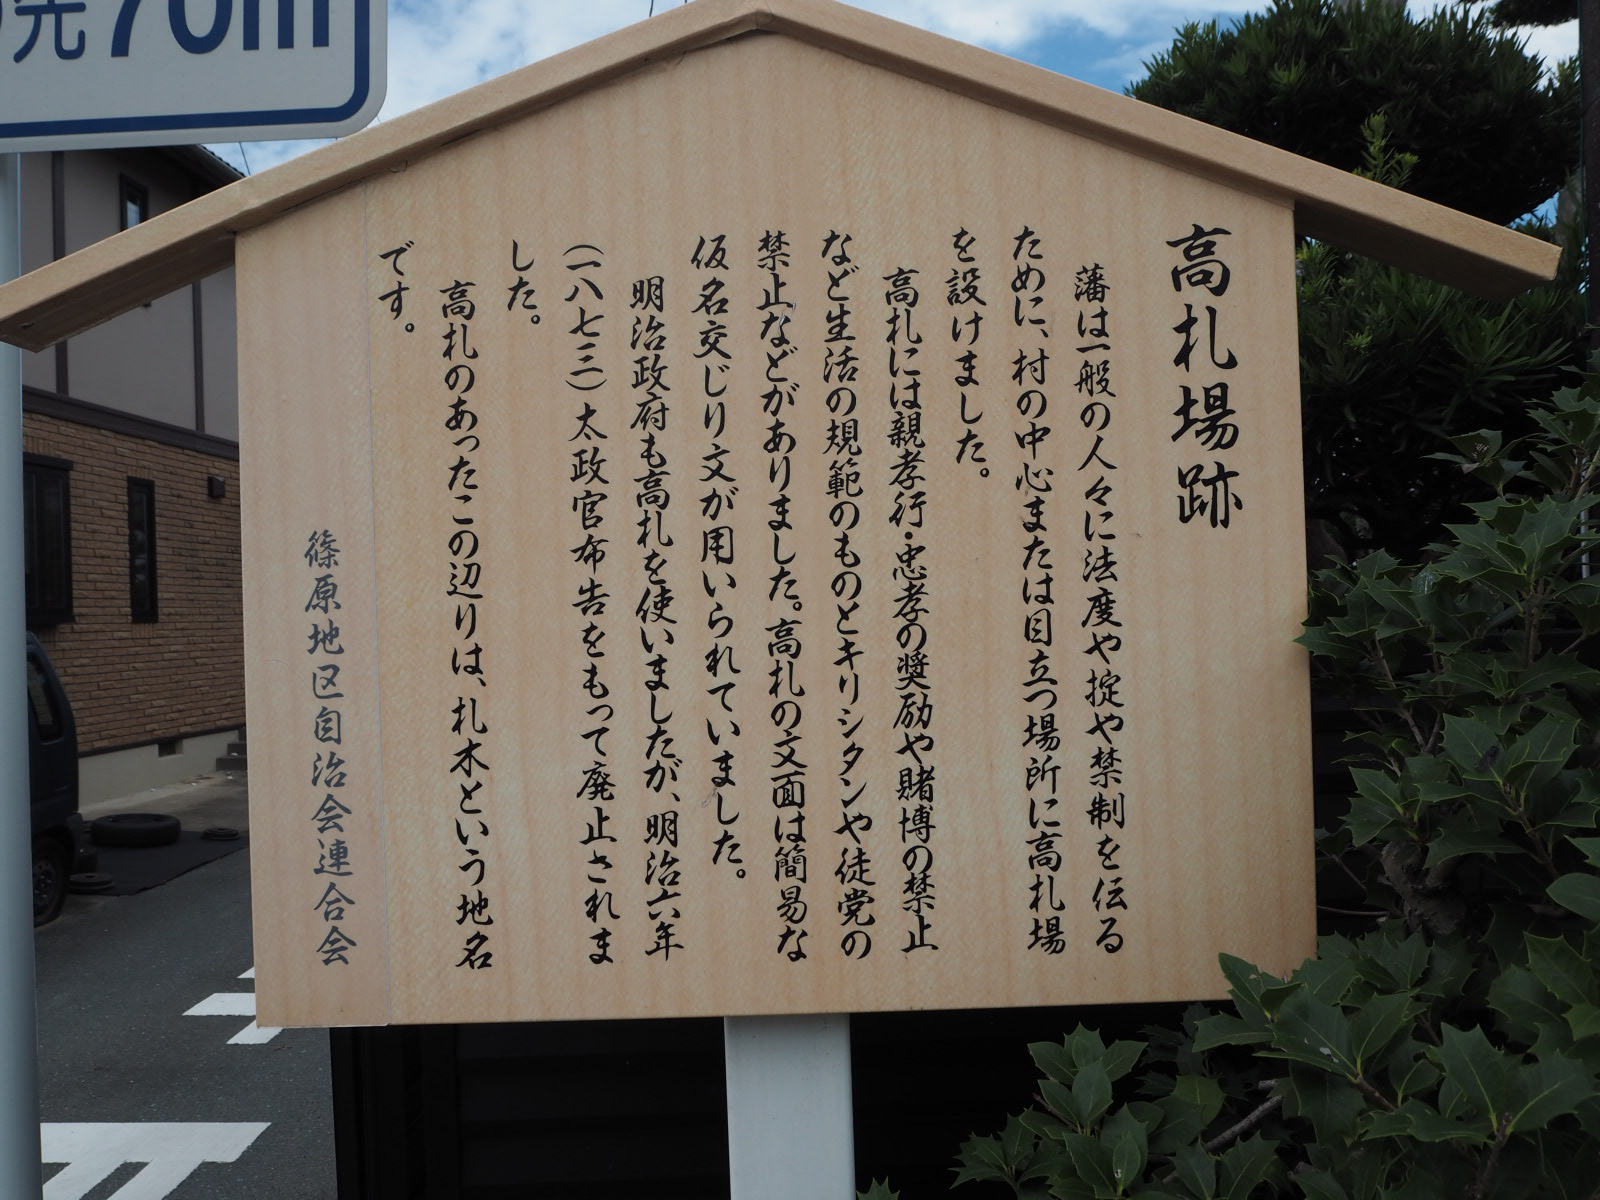 の先70m
高札場跡
藩は一般の人々に法度や掟や禁制を伝る
ために、村の中心または目立つ場所に高札場
を設けました。
高札には親孝行・忠孝の奨励や賭博の禁止
など生活の規範のものとキリシタンや徒党の
禁止などがありました。高札の文面は簡易な
仮名交じり文が用いられていました。
明治政府も高札を使いましたが、明治六年
(一八七三)太政官布告をもって廃止されま
した。
高札のあったこの辺りは、札木という地名
です。
篠原地区自治会連合会